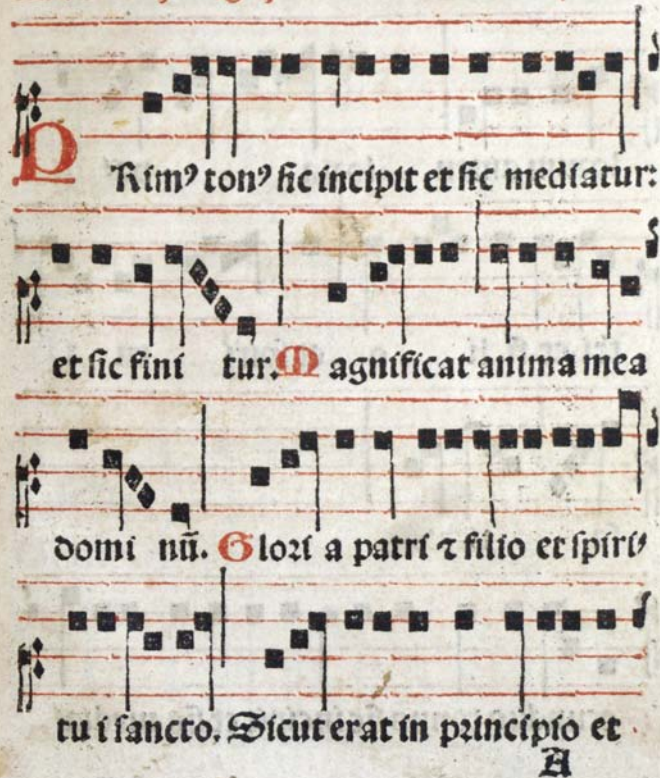 PRimꝰ tonꝰ sic incipit et sic mediatur:
et sic fini tur. Magnificat anima mea
domi nū. Glori a patri ⁊ filio et spiri⸗
tu i sancto. Sicut erat in principio et
A